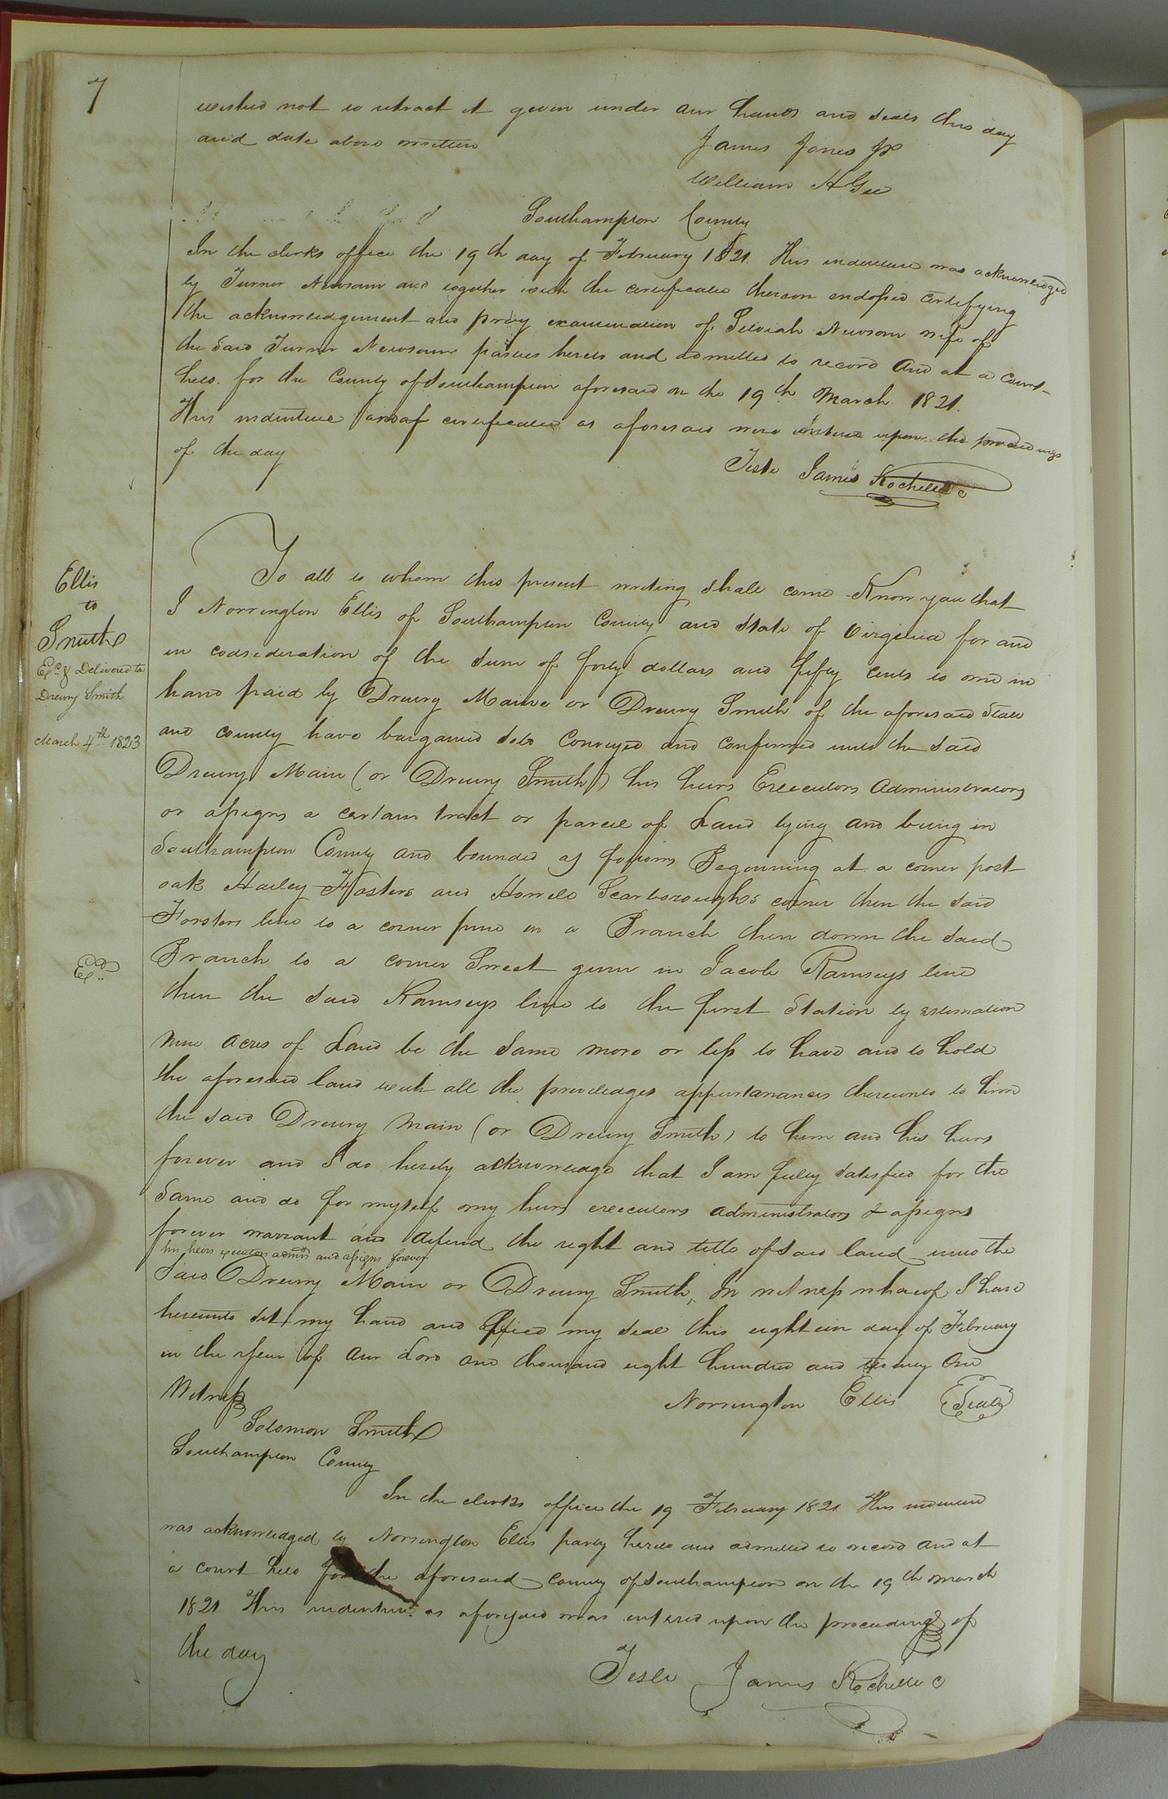 7
wished not to retract it given under our hands and seals this day
and date above written
James Jones Jr
William H Gee
Southampton County
In the clerks office the 19th day of February 1821 This indenture was acknowledged
by Turner Newsom and together with the certificate thereon endorsed certifying
the acknowledgement and privy examination of Selviah Newsom wife of
the said Turner Newsom parties hereto and admitted to record and at a court
held for the County of Southampton aforesaid on the 19th March 1821.
This indenture and certificate as aforesaid were entered upon the proceedings
of the day
Teste James Rochelle C
Ellis
to
Smith
Exd & Delivered to
Drewry Smith
March 4th 1823
To all to whom this present writing shall come Know you that
I Norrington Ellis of Southampton County and State of Virginia for and
in consideration of the Sum of forty dollars and fifty cents to me in
hand paid by Drewry Main or Drewry Smith of the aforesaid State
and county have bargained sold Conveyed and confirmed unto the said
Drewry Main (or Drewry Smith) his heirs Executors Administrators
or assigns a certain tract or parcel of Land lying and being in
Southampton County and bounded as follows Begouning at a corner post
oak Hailey Fosters and Howell Scarboroughs corner then the said
Forsters line to a corner pine in a Branch then down the said
Branch to a corner Sweet gum in Jacob Ramseys line
then the said Ramseys line to the first Station by estimation
Nine acres of Land be the Same more or less to have and to hold
the aforesaid land with all the priviledges appurtanances thereunto to him
the said Drewry Main (or Drewry Smith) to him and his heirs
forever and I do hereby acknowledge that I am fully satisfied for the
Same and do for myself my heirs executors administrators & assigns
forever warrant and defend the right and title of said land unto the
his heirs executors admrs and assigns forever
Said Drewry Main or Drewry Smith, In witness whereof I have
hereunto set my hand and affixed my seal this eighteen day of February
in the year of our Lord one thousand eight hundred and twenty one
Exd
Witness
Norrington Ellis (Seal)
Solomon Smith
Southampton County
In the clerks office the 19 February 1821 This indenture
was acknowledged by Norrington Ellis party hereto and admitted to record and at
a court held for the aforesaid County of Southampton on the 19th march
1821 This indenture as aforesaid was entered upon the proceedings of
the day
Teste James Rochelle C